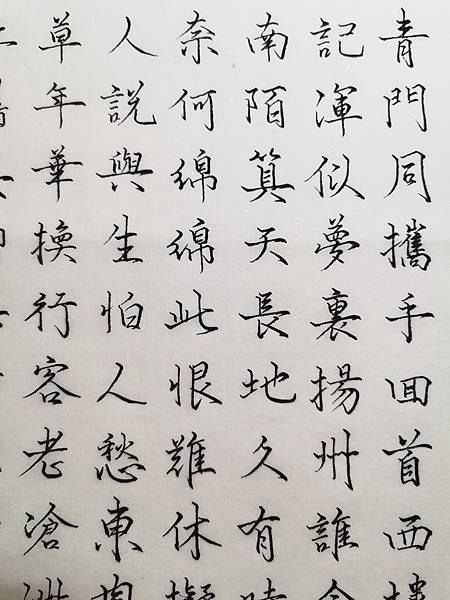 青門同攜手回首西樓
記渾似夢裏揚州誰念
南陌算天長地久有時
奈何綿綿此恨難休擬
人說與生怕人愁東
草年華換行客老滄洲